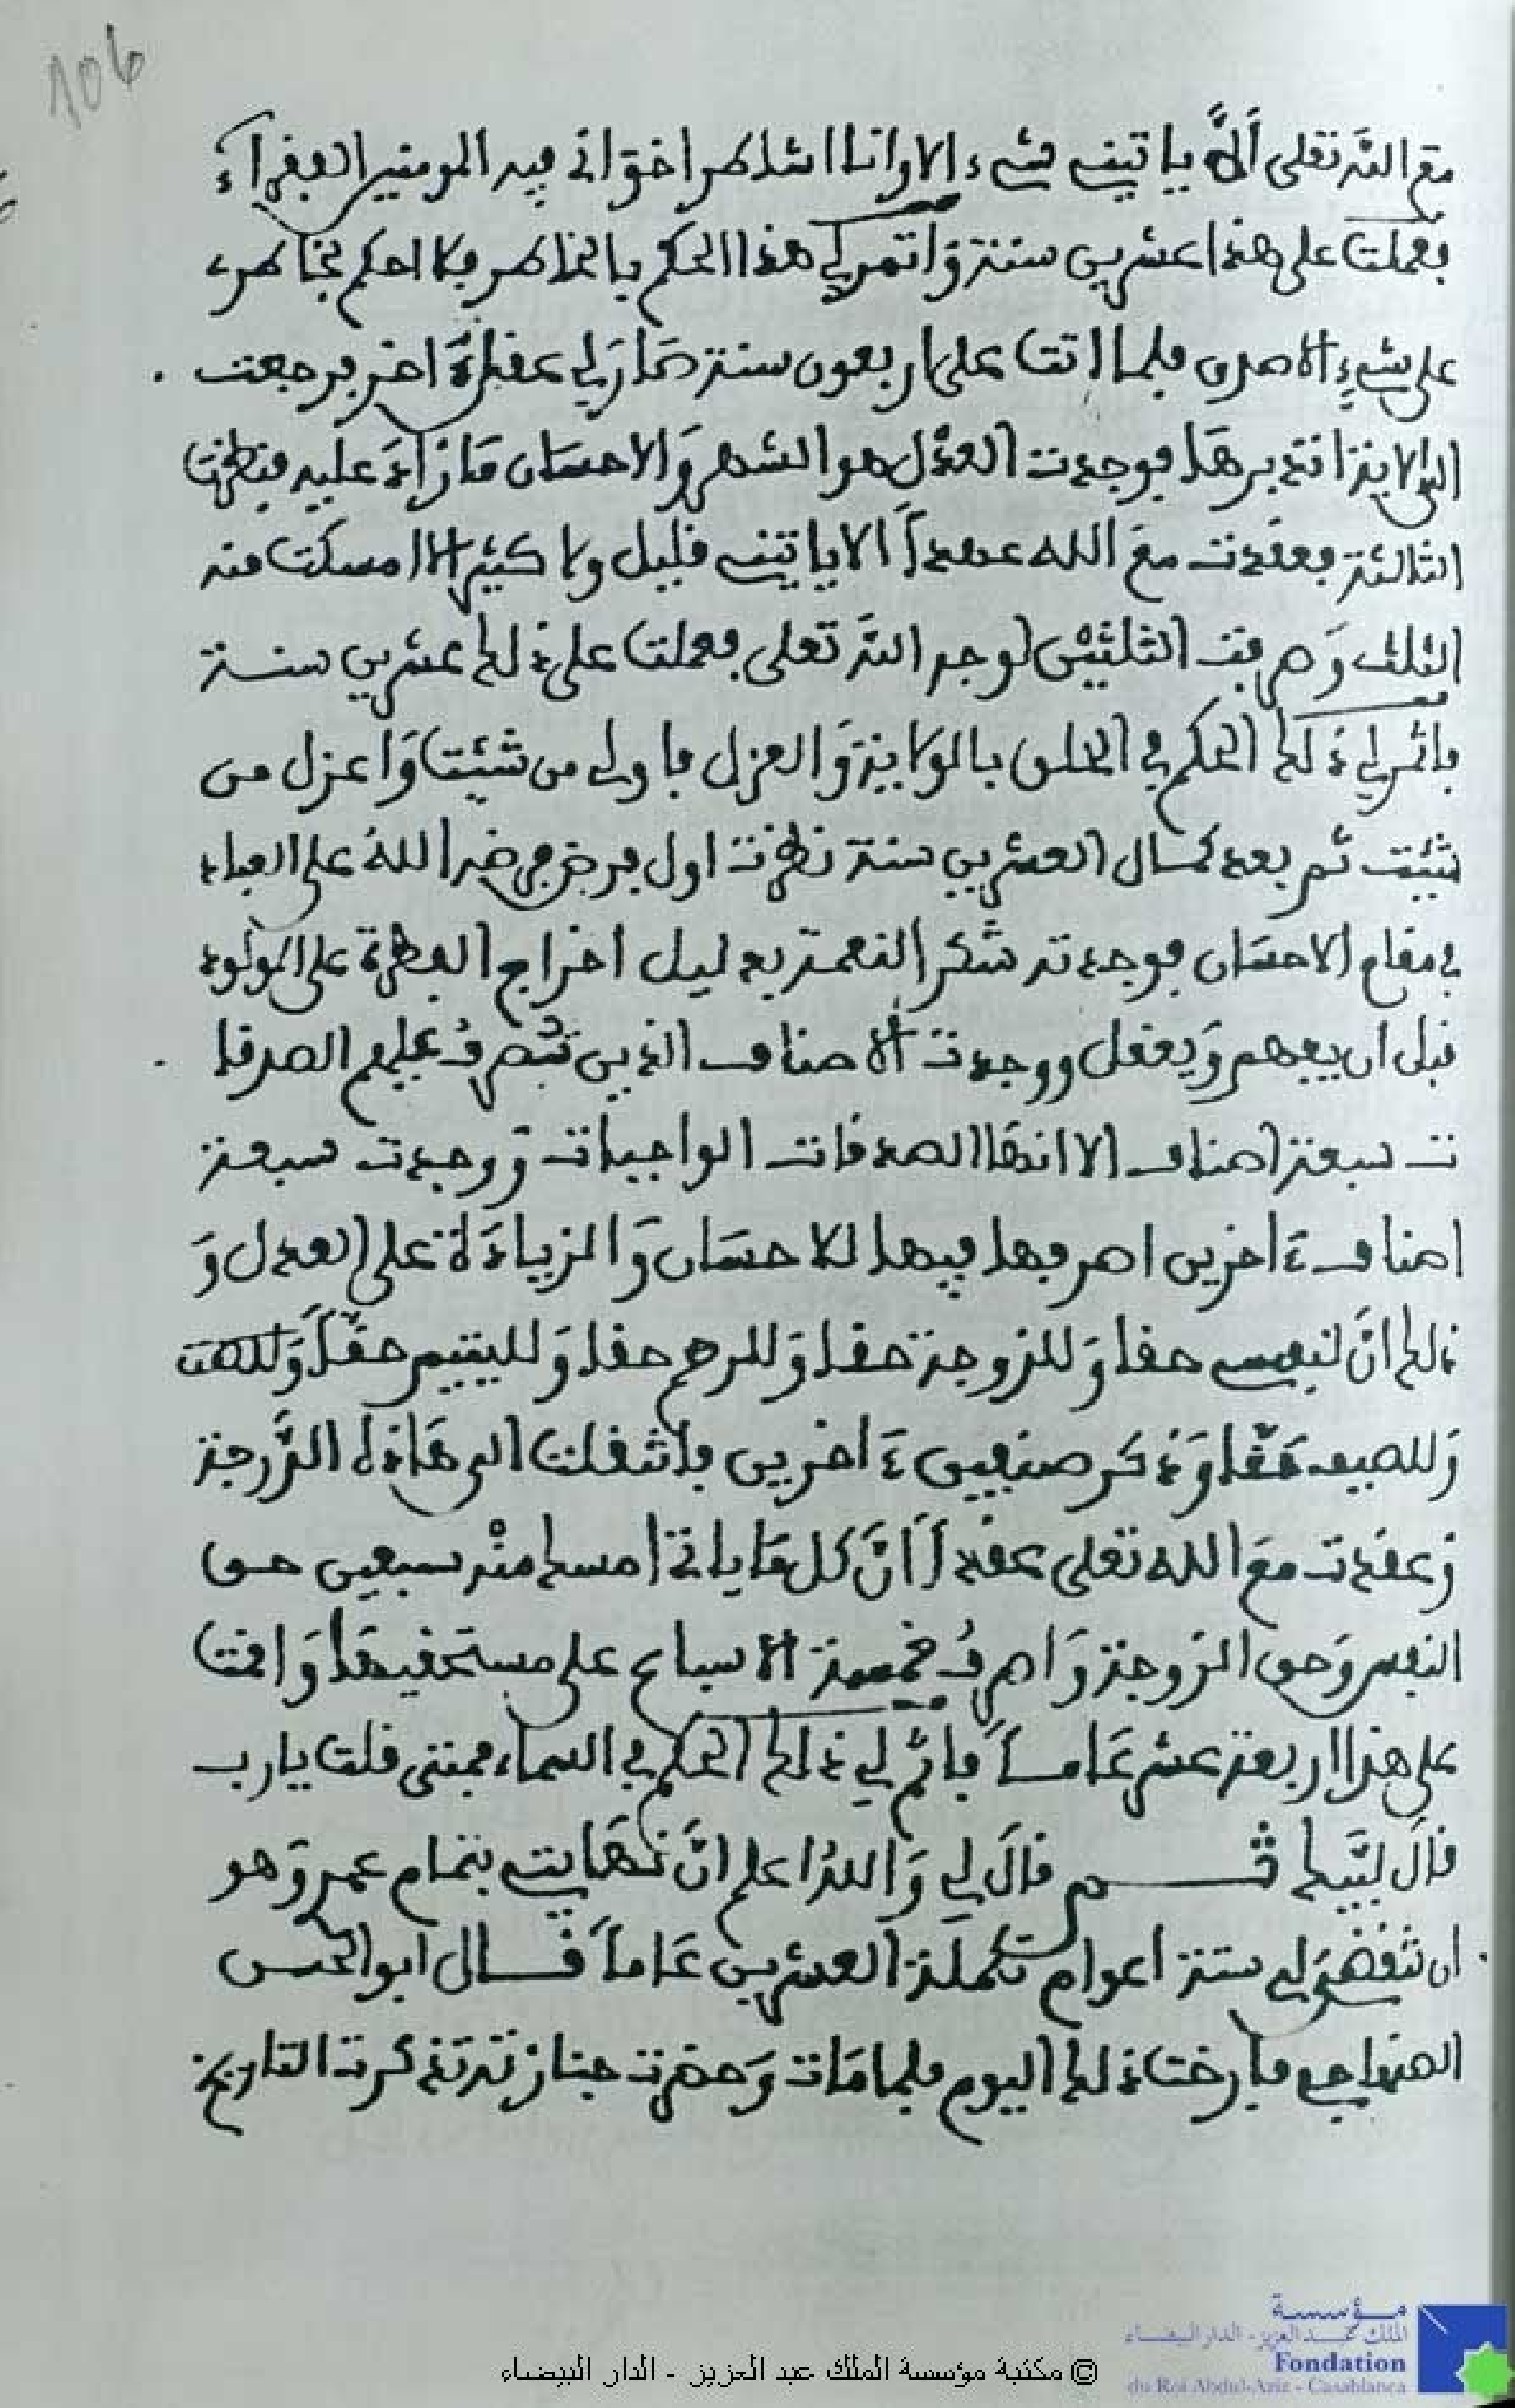 106
مع الله تعلى ألَّا ياتيني شيء الا وانا اشاطر اخواني فيه المومنين الفقرآء
فعملت على هذا عشرين سنة وَاثمر لي هذا الحكم بالخاطر فلا احكم بخاطرء
على شيءٍ الا صدق فلما اتت علي اربعون سنة حَارَ لي عقلي مرة اخر فرجعت
الى الاية اتدبرهَا فوجدت العدل هو الشطر وَالاحسان مَا زاد عليه فنظرت
الثالثة فعقدت مع الله عهداً الا ياتيني قليل ولا كثير الا امسكت منه
الثلث وَصرفت الثلثيْن لوجه الله تعلى فعملت على ذلك عشرين سنة
فاثمر لي ذلك الحكم في الخلق بالولاية وَالعزل فاولى من شئت وَاعزل من
شئت ثم بعد كمال العشرين سنة نظرت اول فرض فرضه الله على العباد
في مقام الاحسَان فوجدته شكر النعمة بدليل اخراج الفطرة على المولود
قبل ان يفهم وَيعقل ووجدت الاصناف الذين تُصرفُ عليهم الصدقا
ت سبعة اصناف الا انها الصدقات الواجبات وَوجدت سبعة
اصناف ءَاخرين اصرفها فيها للاحسَان وَالزيادَة على العدل وَ
ذلك انَّ لنفسي حقا وَللزوجة حقا وَللرحم حقا وَلليتيم حقاً
وَللضيف حَقّا وَذكر صنفين ءَاخرين فانتقلت الى هَاذه الدَّرجة
وَعقدت معَ الله تعلى عقداً اَنَّ كل مَا ياتي امسك منْه سبعين حق
النفس وَحق الزوجة وَاصرفُ خمسة الاسباع على مستحقيهَا وَاقمت
على هذا اربعة عشر عَاماً فاثمر لي ذلك الحكم في السماء فمتى قلت يارب
قالَ لبَّيك ثم قالَ لي وَاللهُ اعلم انَّ نهَايتي بتمام عمر وَهو
ان تنقضيَ لي ستة اعوام تكملَة العشرين عَاماً قال ابو الحسن
الصنهاجي فارخت ذلك اليوم فلما مَات وَحضرت جنازته تذكرت التاريخ
© مكتبة مؤسسة الملك عبد العزيز - الدار البيضاء
مؤسسة
الملك عبد العزيز - الدار البيضاء
Fondation
du Roi Abdul-Aziz - Casablanca